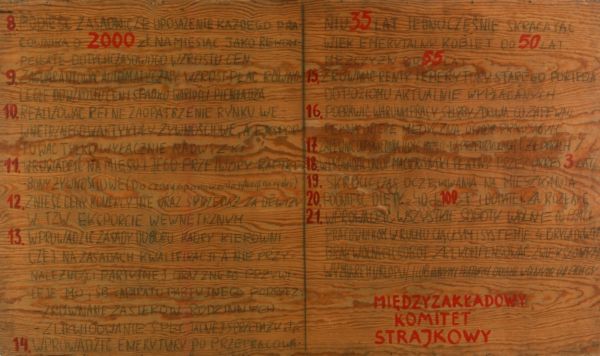 8. PODNIEŚĆ ZASADNICZE UPOSAŻENIE KAŻDEGO PRA-
COWNIKA O 2000 ZŁ NA MIESIĄC JAKO REKOM-
PENSATĘ DOTYCHCZASOWEGO WZROSTU CEN.
9. ZAGWARANTOWAĆ AUTOMATYCZNY WZROST PŁAC RÓWNO-
LEGLE DO WZROSTU CEN I SPADKU WARTOŚCI PIENIĄDZA
10. REALIZOWAĆ PEŁNE ZAOPATRZENIE RYNKU WE-
WNĘTRZNEGO W ARTYKUŁY ŻYWNOŚCIOWE, A EKSPOR-
TOWAĆ TYLKO I WYŁĄCZNIE NADWYŻKI
11. WPROWADZIĆ NA MIĘSO I JEGO PRZETWORY KARTKI
BONY ŻYWNOŚCIOWE
12. ZNIEŚĆ CENY KOMERCYJNE ORAZ SPRZEDAŻ ZA DEWIZY
W TZW. EKSPORCIE WEWNĘTRZNYM
13. WPROWADZIĆ ZASADY DOBORU KADRY KIEROWNI-
CZEJ NA ZASADACH KWALIFIKACJI A NIE PRZY-
NALEŻNOŚCI PARTYJNEJ ORAZ ZNIEŚĆ PRZYWI-
LEJE MO, SB I APARATU PARTYJNEGO POPRZEZ:
- ZRÓWNANIE ZASIŁKÓW RODZINNYCH
- ZLIKWIDOWANIE SPECJALNEJ SPRZEDAŻY
14. WPROWADZIĆ EMERYTURY PO PRZEPRACOWA-
NIU 35 LAT JEDNOCZEŚNIE SKRACAJĄC
WIEK EMERYTALNY KOBIET DO 50 LAT
MĘŻCZYZN DO 55 LAT
15. ZRÓWNAĆ RENTY I EMERYTURY STAREGO PORTFELA
DO POZIOMU AKTUALNIE WYPŁACANYCH
16. POPRAWIĆ WARUNKI PRACY SŁUŻBY ZDROWIA CO ZAPEWNI
PEŁNĄ OPIEKĘ MEDYCZNĄ OSOBOM PRACUJĄCYM
17.
18. URLOP MACIERZYŃSKI PŁATNY PRZEZ OKRES 3 LAT
19. SKRÓCIĆ CZAS OCZEKIWANIA NA MIESZKANIA
20 PODNIEŚĆ DIETY 40 ZŁ 100 ZŁ I DODATEK ZA ROZŁĄKĘ
21. WPROWADZIĆ WSZYSTKIE SOBOTY WOLNE OD PRACY
PRACOWNIKOM W RUCHU CIĄGŁYM I SYSTEMIE 4-BRYGADOWYM
MIĘDZYZAKŁADOWY
KOMITET
STRAJKOWY